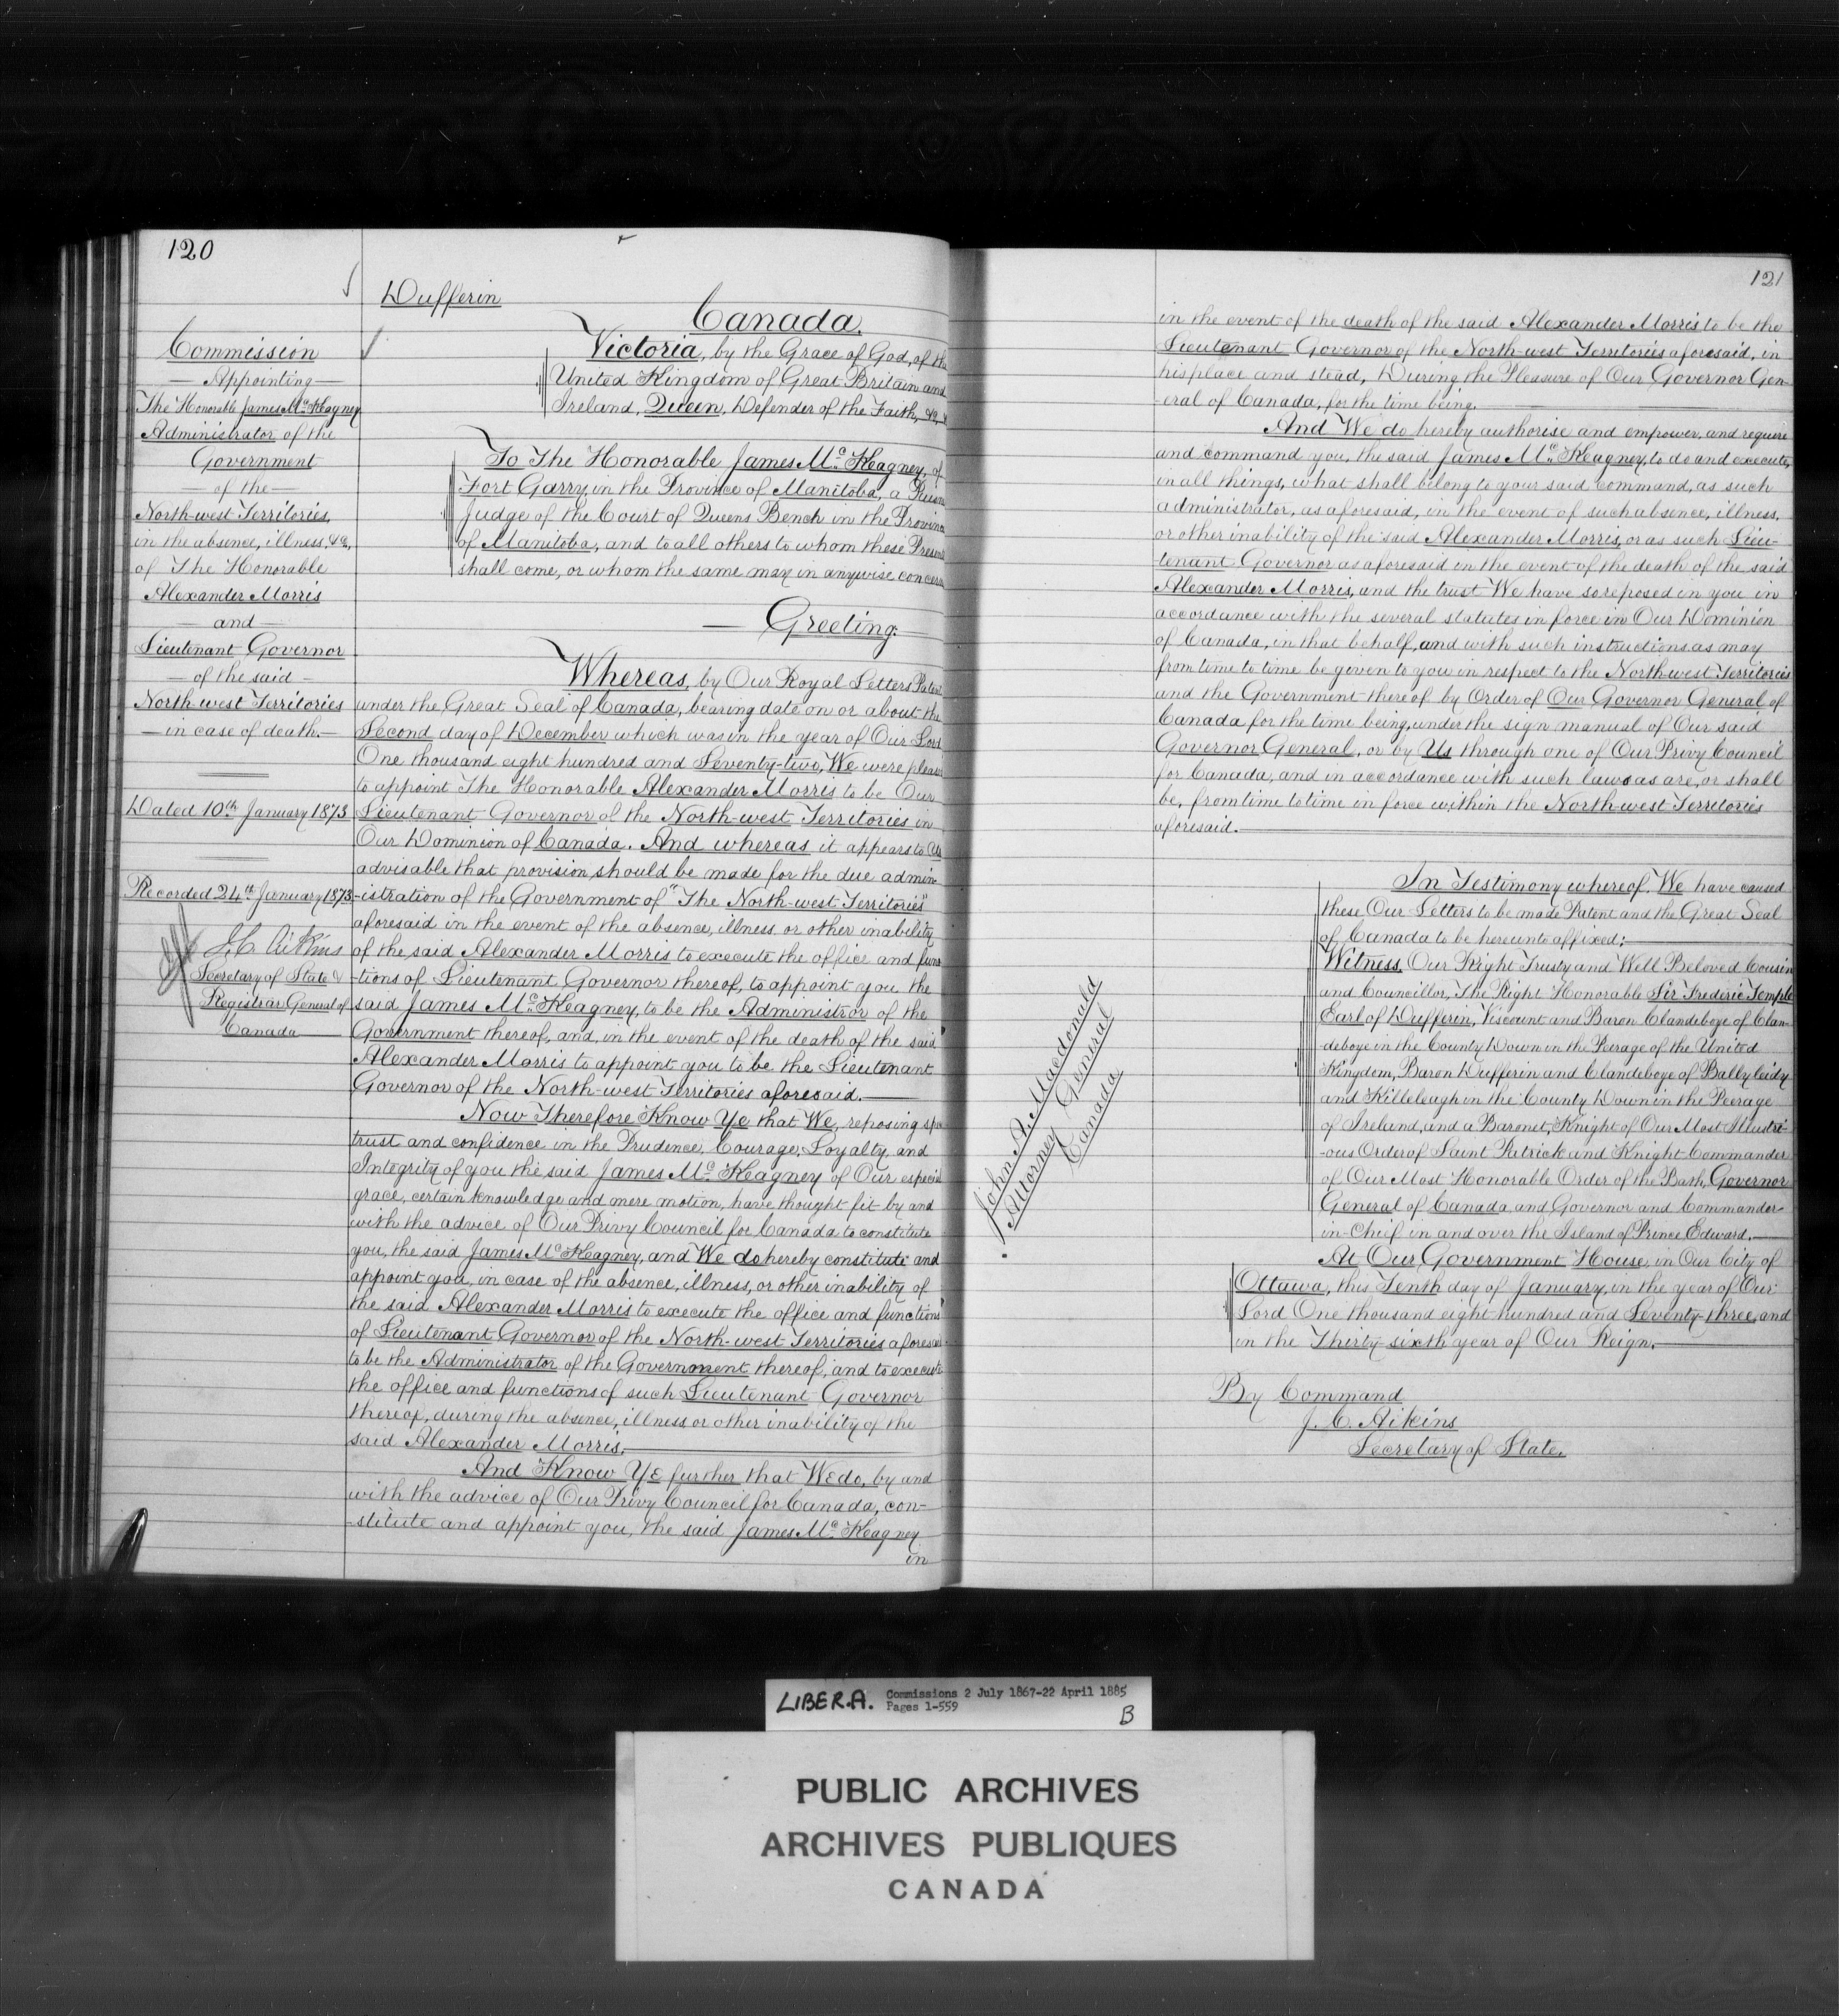 120
Dufferin
Canada.
Commission
— Appointing —
The Honorable James Mc. Keagney
Administrator of the
Government
— of the —
North-west Territories,
in the absence, illness, &c.,
of The Honorable
Alexander Morris
— and —
Lieutenant Governor
— of the said —
North west Territories
— in case of death. —
Dated 10th January 1873
Recorded 24th January 1873
J.C. Aikins
Secretary of State &
Registrar General of
Canada
Victoria, by the Grace of God, of the
United Kingdom of Great Britain and
Ireland, Queen, Defender of the Faith, &c, &
To The Honorable James Mc. Keagney, of
Fort Garry, in the Province of Manitoba, a Puisn
Judge of the Court of Queens Bench in the Provinc
of Manitoba, and to all others to whom these Presen
shall come, or whom the same may in anywise concern
— Greeting:
Whereas, by Our Royal Letters Patent
under the Great Seal of Canada, bearing date on or about the
Second day of December which was in the year of Our Lord
One thousand eight hundred and Seventy-two, We were pleas
to appoint The Honorable Alexander Morris to be Our
Lieutenant Governor of the North-west Territories in
Our Dominion of Canada. And whereas it appears to Us
advisable that provision should be made for the due admin
-istration of the Government of "The North-west Territories"
aforesaid in the event of the absence, illness or other inability
of the said Alexander Morris to execute the office and func
-tions of Lieutenant Governor thereof, to appoint you the
said James Mc. Keagney, to be the Administror of the
Government thereof, and, in the event of the death of the said
Alexander Morris to appoint you to be the Lieutenant
Governor of the North-west Territories aforesaid. —
Now Therefore Know Ye that We, reposing spe
trust and confidence in the Prudence, Courage, Loyalty, and
Integrity of you the said James Mc. Keagney of Our especial
grace, certain knowledge and mere motion, have thought fit by and
with the advice of Our Privy Council for Canada to constitute
you, the said James Mc Keagney, and We do hereby constitute and
appoint you, in case of the absence, illness, or other inability of
the said Alexander Morris to execute the office and functions
of Lieutenant Governor of the North-west Territories aforesai
to be the Administrator of the Government thereof, and to execute
the office and functions of such Lieutenant Governor
thereof, during the absence, illness or other inability of the
said Alexander Morris. —
And Know Ye further that We do, by and
with the advice of Our Privy Council for Canada, con-
-stitute and appoint you, the said James Mc. Keagney
in
121
in the event of the death of the said Alexander Morris to be the
Lieutenant Governor of the North-west Territories aforesaid, in
his place and stead, During the Pleasure of Our Governor Gen-
-eral of Canada, for the time being. —
And We do hereby authorise and empower, and require
and command you, the said James Mc. Keagney, to do and execute,
in all things, what shall belong to your said command, as such
administrator, as aforesaid, in the event of such absence, illness,
or other inability of the said Alexander Morris, or as such Lieu-
tenant Governor as aforesaid in the event of the death of the said
Alexander Morris, and the trust We have so reposed in you in
accordance with the several statutes in force in Our Dominion
of Canada, in that behalf, and with such instructions as may
from time to time be given to you in respect to the North-west Territories
and the Government thereof by Order of Our Governor General of
Canada for the time being, under the sign manual of Our said
Governor General, or by Us through one of Our Privy Council
for Canada, and in accordance with such laws as are, or shall
be, from time to time in force within the North-west Territories
aforesaid. —
In Testimony whereof, We have caused
these Our Letters to be made Patent and the Great Seal
of Canada to be hereunto affixed: —
Witness, Our Right Trusty and Well Beloved Cousin
and Councillor, The Right Honorable Sir Frederic Temple
Earl of Dufferin, Viscount and Baron Clandeboye of Clan-
-deboye in the County Down in the Peerage of the United
Kingdom, Baron Dufferin and Clandeboye of Ballyleidy
and Killeleagh in the County Down in the Peerage
of Ireland, and a Baronet, Knight of Our Most Illustri-
-ous Order of Saint Patrick and Knight Commander
of Our Most Honorable Order of the Bath, Governor
General of Canada and Governor and Commander
in-Chief in and over the Island of Prince Edward. —
At Our Government House, in Our City of
Ottawa, this Tenth day of January, in the year of Our
Lord One thousand eight hundred and Seventy-three, and
in the Thirty sixth year of Our Reign. —
John A. Macdonald
Attorney General
Canada
By Command
J. C. Aikins
Secretary of State.
LIBER.A. Commissions 2 July 1867-22 April 1885
Pages 1-559
B
PUBLIC ARCHIVES
ARCHIVES PUBLIQUES
CANADA